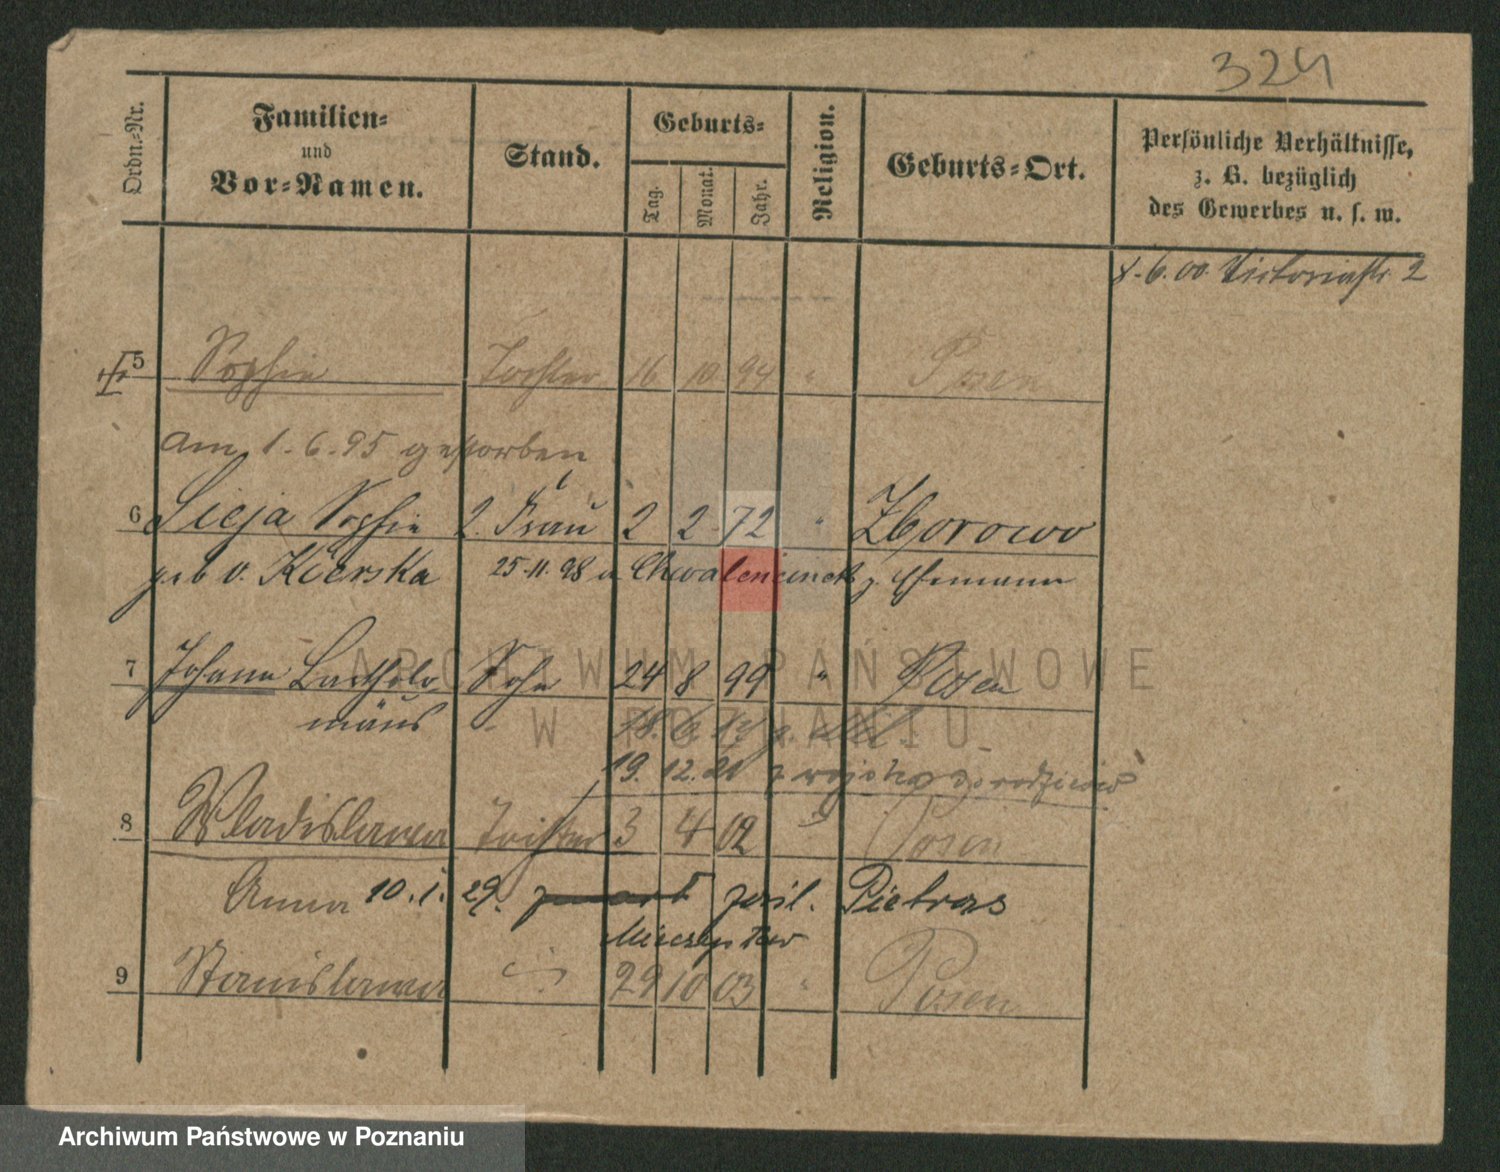 324
Ordn.-Nr. Familien- und Vor-Namen. Stand. Geburts- Tag. Monat. Jahr. Religion. Geburts-Ort. Persönliche Verhältnisse, z. B. bezüglich des Gewerbes u. s. w.
8.6.00 Victoriastr. 2
5 Sophie Tochter 16 10 94 " Posen
am 1.6.95 gestorben
6 Sieja Sophie 2. Frau 2 2 72 " Zborowo
geb v. Kierska 25.11.98 a. z. Ehemann
7 Johann Bartholo Sohn 24 8 99 " Posen
mäus
18.6.19
19.12.20 z wojska do rodziców
8 Wladislawa Tochter 3 4 02 " Posen
Anna 10.1.29. zasl. Pietras
Mieczysław
9 Stanislawa " 29 10 03 " Posen
ARCHIWUM PAŃSTWOWE
W POZNANIU
Archiwum Państwowe w Poznaniu